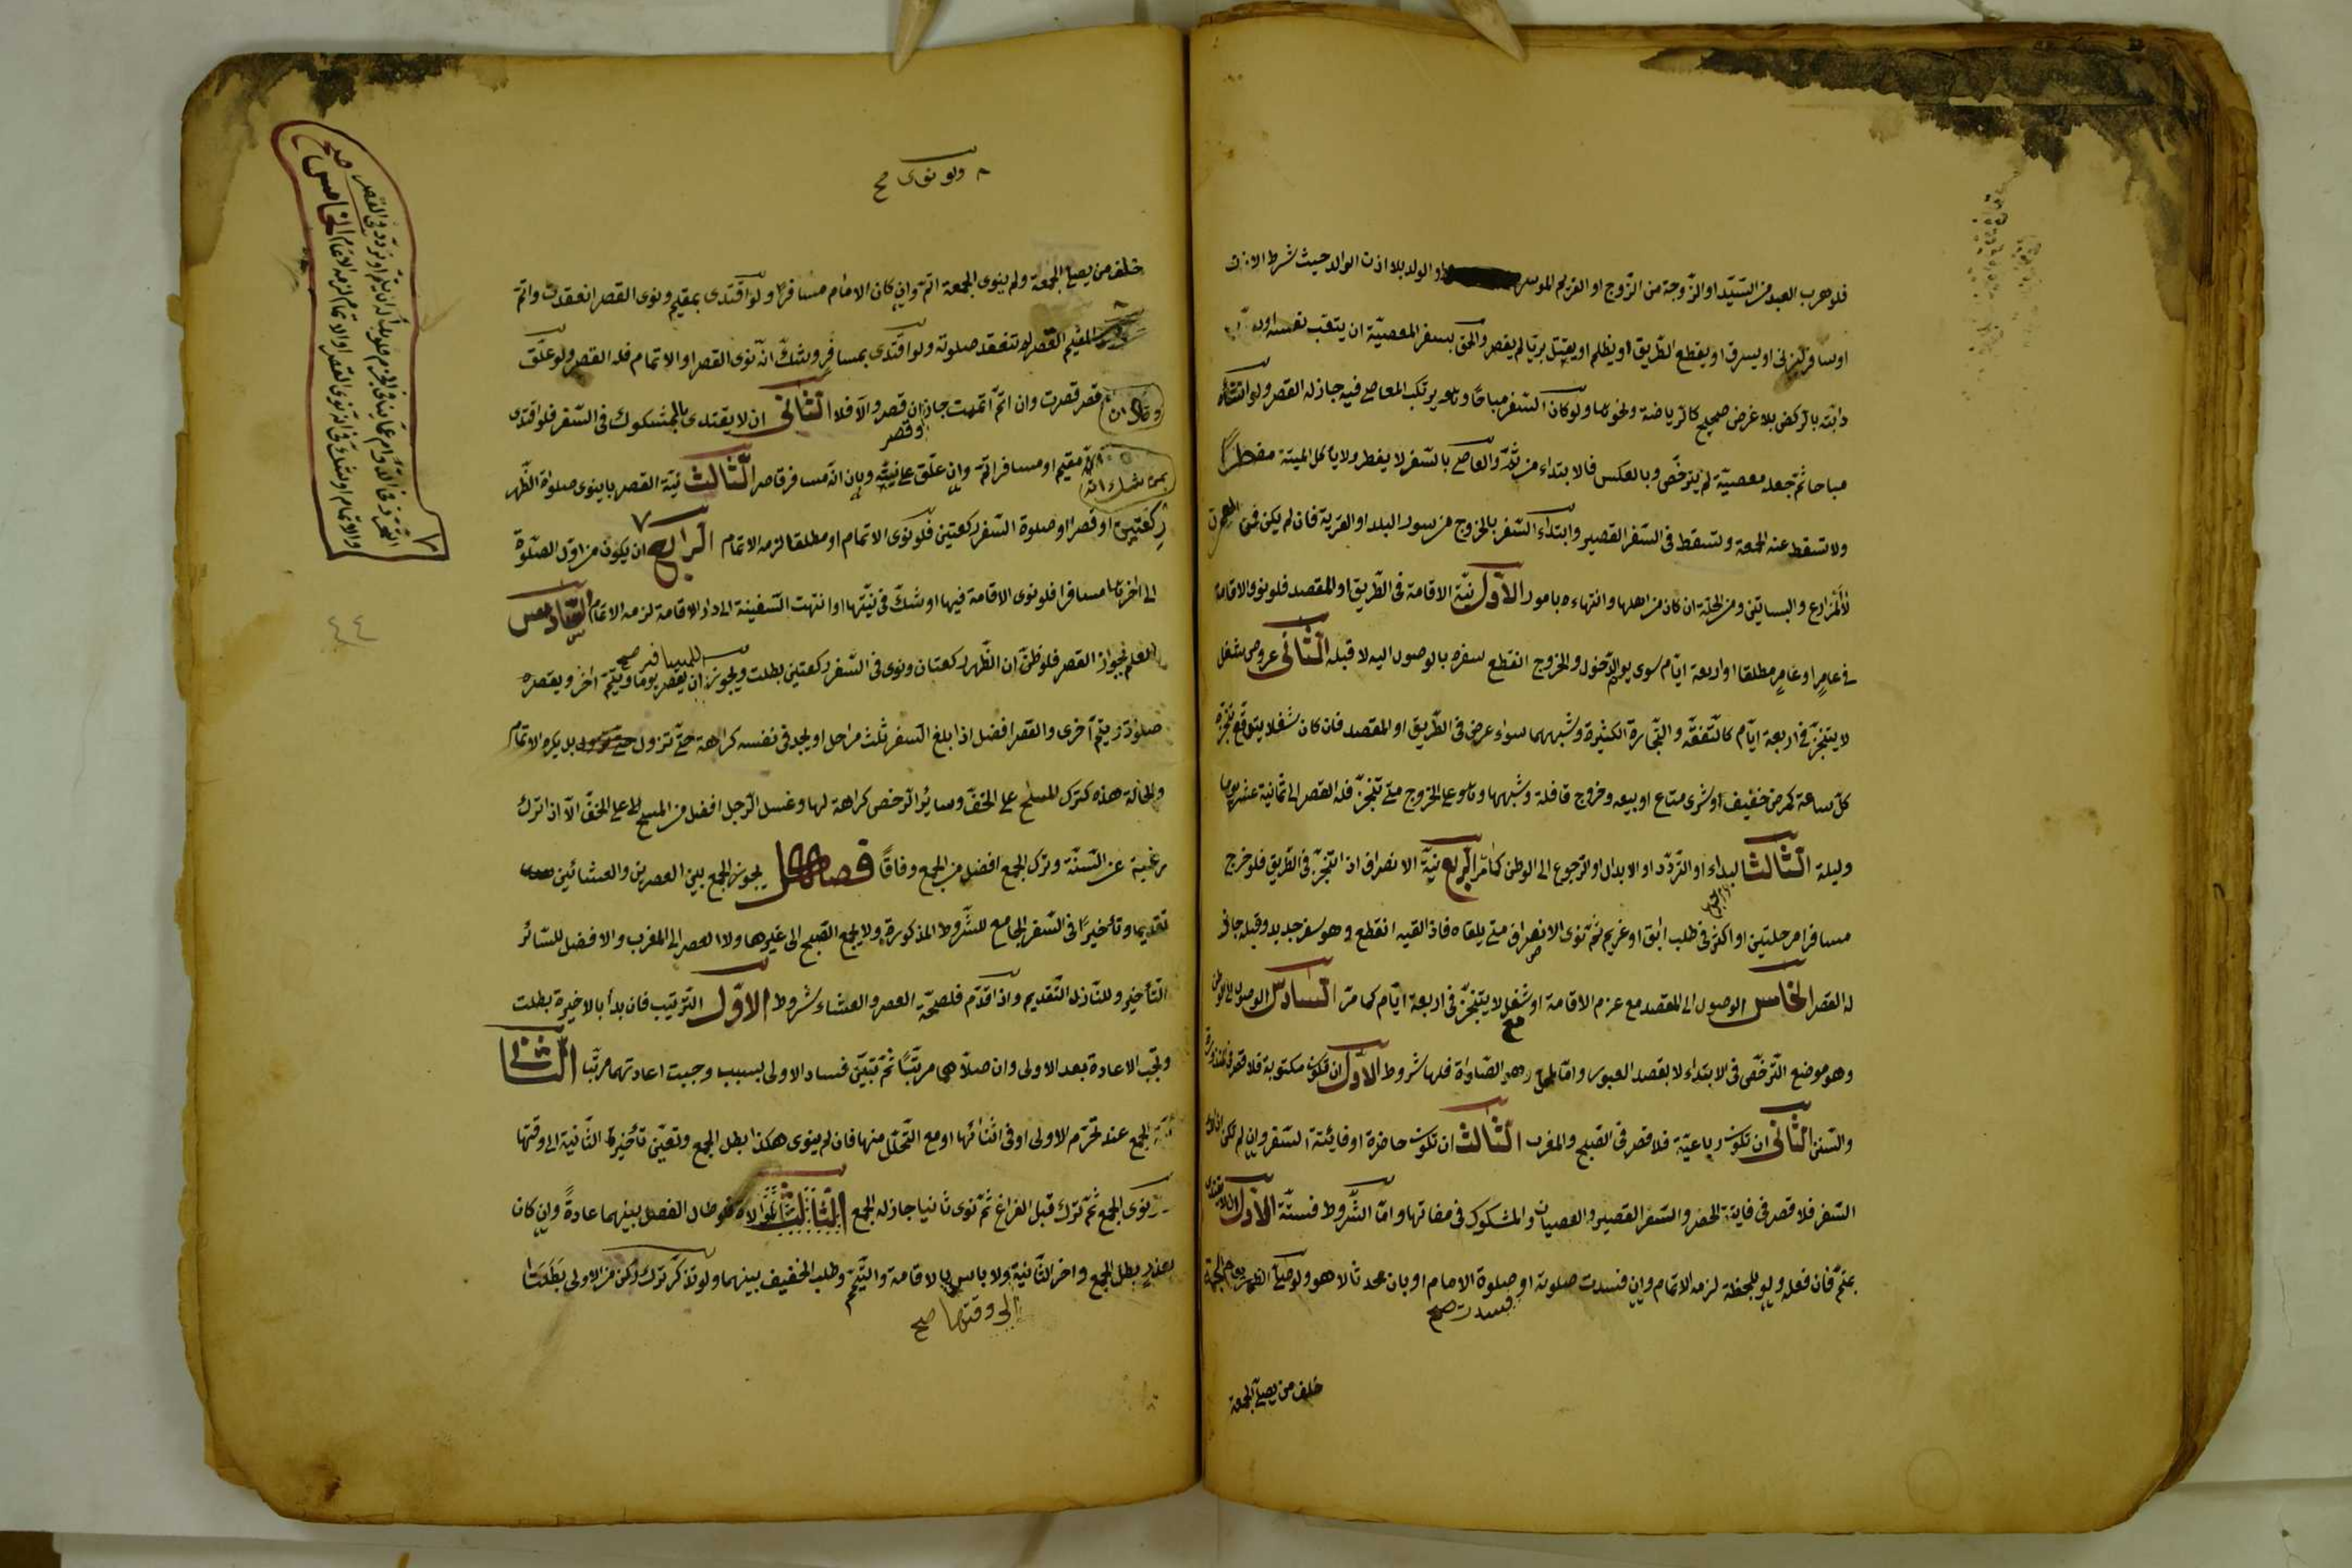 فلو هرب العبد من السيّد او الزّوجة من الزّوج او الغريم الموسر او الولد بلا اذن الوالد حيث شرط الاذن
او سافر ليزنى او يسرق او يقطع الطّريق او يظلم او يقتل بريّا لم يقصر والحق بسفر المعصيّة ان يتعب نفسه او
دابّته بالركض بلا غرض صحيح كالرياضة ونحوها ولو كان السّفر مباحًا وهو يرتكب المعاصى فيه جاز له القصر ولو انشأه
مباحا ثم جعله معصيّة لم يترخّص وبالعكس فالابتداء من ثمّ والعاصى بالسّفر لا يفطر ولا ياكل الميتة مضطرًّا
ولا تسقط عنه الجمعة وتسقط فى السّفر القصير وابتداء السّفر بالخروج من سور البلد او القرية فان لم يكن فمن العمران
لا المزارع والبساتين ومن الحلّة ان كان من اهلها وانتهاءه بامور الاوّل نيّة الاقامة فى الطّريق او المقصد فلو نوى الاقامة
مطلقا او اربعة ايّام سوى يوم الدّخول والخروج انقطع سفره بالوصول اليه لا قبله الثّانى عروض شغل
لا يتنجّز فى اربعة ايّام كالتّفقّه والتّجارة الكثيرة وشبههما سواء عرض فى الطّريق او المقصد فان كان شغلا يتوقّع تنجّزه
كلّ ساعة كمرض خفيف او شرى متاع او بيعه وخروج قافلة وشبهها وهو على الخروج متى تنجّز فله القصر الى ثمانية عشر يوما
وليلة الثّالث البداء او التّردّد او الابدال او الرّجوع الى الوطن كما مرّ الرّابع نيّة الانصراف اذا انتجز فى الطريق فلو خرج
مسافرا مرحلتين او اكثر فى طلب ابق او غريم ثم نوى الانصراف متى يلقاه فاذا لقيه انقطع وهو سفر جديد وقبله جائز
له القصر الخامس الوصول الى المقصد مع عزم الاقامة او شغل لا يتنجّز فى اربعة ايّام كما مرّ السّادس الوصول الى الوطن
وهو موضع التّرخّص فى الابتداء لا بقصد العبور وامّا المحل وهو الصّلوة فلها شروط الاوّل ان تكون مكتوبة فلا قصر فى المنذورة
والسّنن الثّانى ان تكون رباعيّة فلا قصر فى الصّبح والمغرب الثّالث ان تكون حاضرة او فائتة السّفر وان لم تكن
السّفر فلا قصر فى فايتة الحضر والسّفر القصير والعصيان والمشكوك فى مفاتها وامّا الشّروط فستّة الاوّل ان لا يقتدى
بمتمّ فان فعل ولو للحظة لزمه الاتمام وان فسدت صلوته او صلوة الامام او بان محدثا لا هو ولو صلّى الظّهر
فسدت صح
خلف من يصلّى الجمعة
ولو نوى صح
خلف من يصلّى الجمعة ولم ينوى الجمعة اتمّ وان كان الامام مسافرًا ولو اقتدى بمقيم ونوى القصر انعقدت واتمّ
المقيم القصر لم تنعقد صلوته ولو اقتدى بمسافر وشكّ انّه نوى القصر او الاتمام فله القصر ولو علّق
وقال ان قصر قصرت وان اتمّ اتممت جاز ان قصر والّا فلا الثّانى ان لا يقتدى بالمشكوك فى السّفر فلو اقتدى
بمن شك انّه مقيم او مسافر اتمّ وان علّق على نيّته وبان انّه مسافر قاصر الثّالث نيّة القصر باينوى صلوة الظّهر
وقصر
ركعتين او قصرا او صلوة السّفر ركعتين فلو نوى الاتمام او مطلقا لزمه الاتمام الرّابع ان يكون من اوّل الصّلوة
الى اخرها مسافرا فلو نوى الاقامة فيها او شكّ فى نيّتها او انتهت السّفينة الى دار الاقامة لزمه الاتمام السّادس
العلم بجواز القصر فلو ظنّ ان الظّهر ركعتان ونوى فى السّفر ركعتين بطلت ويجوز للمسافر صح ان يقصر يوما ويتمّ اخر ويقصر
صلوة ويتمّ اخرى والقصر افضل اذا بلغ السّفر ثلث مراحل او يجد فى نفسه كراهة حتّى تزول بل يكره الاتمام
والحالة هذه كترك المسح على الخفّ وسائر الرّخص كراهة لها وغسل الرّجل افضل من المسح على الخفّ الّا اذا ترك
رغبة عن السّنّة وترك الجمع افضل من الجمع وفاقًا فصل يجوز الجمع بين العصرين والعشائين
تقديما وتأخيرًا فى السّفر الجامع للشّروط المذكورة ولا يجمع الصّبح الى غيرها ولا العصر الى المغرب والافضل للسّائر
التّأخير وللنّازل التّقديم واذا قدّم فلصحّة العصر والعشاء شروط الاوّل التّرتيب فان بدأ بالاخيرة بطلت
وتجب الاعادة بعد الاولى وان صلّاهما مرتّبًا ثمّ تبيّن فساد الاولى بسبب وجبت اعادتهما مرتّبا الثّانى
نيّة الجمع عند تحرّم الاولى او فى اثنائها او مع التّحلّل منها فان لم ينوى هكذا بطل الجمع وتعيّن تأخيرة الثّانية الى وقتها
نوى الجمع ثمّ ترك قبل الفراغ ثمّ نوى ثانيا جاز له الجمع الثّالث الموالاة فلو طال الفصل بينهما عادةً وان كان
بعذر بطل الجمع واخر الثّانية ولا باس بالاقامة والتّيمّم وطلب الخفيف بينهما ولو تذكّر ترك ركن من الاولى بطلتا
الى وقتها صح
الخامس صح
٤٤